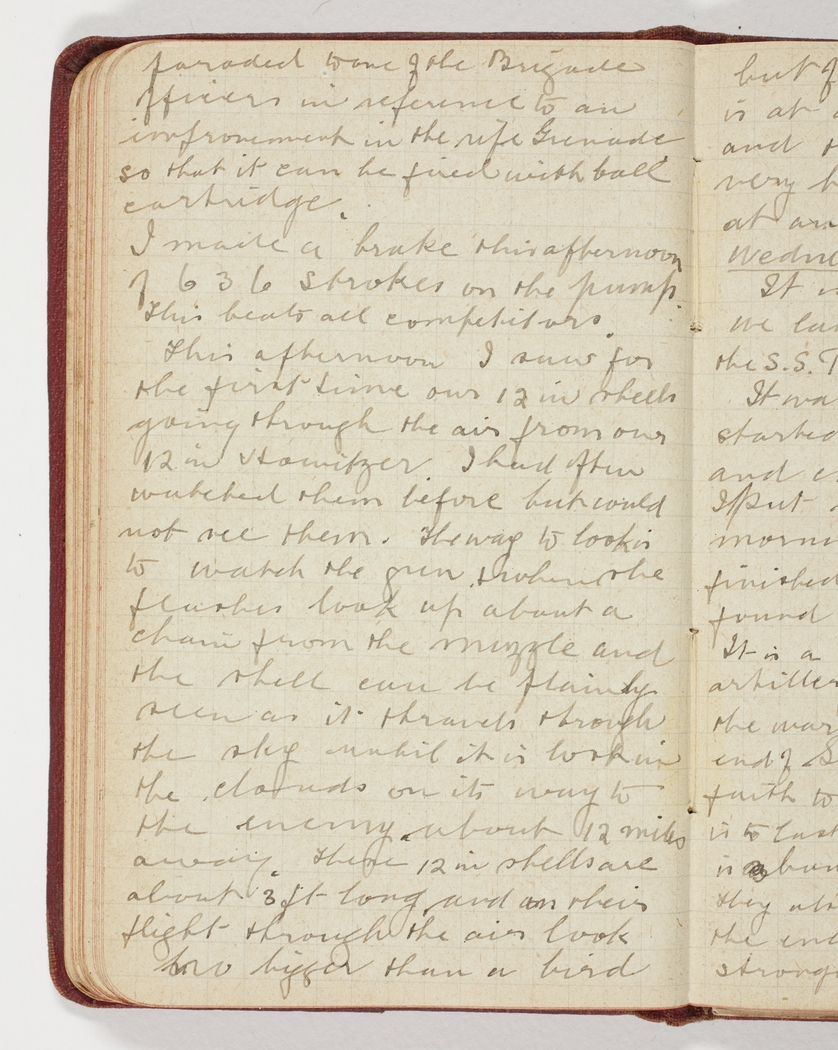 paraded to one of the Brigade
officers in reference to an
improvement in the rife Grenade
so that it can be fired with ball
cartridge.
I made a brake this afternoon
of 636 strokes on the pump.
This beats all competitors.
This afternoon I saw for
the first time our 12 in shells
going through the air from our
12 in Howitzer I had often
watched them before but could
not see them. The way to look is
to watch the gun, & when she
flashes look up about a
chain from the muzzle and
the shell can be plainly
seen as it thravels through
the sky untill it is lost in
the clouds on its way to
the enemy about 12 miles
away. These 12 in shells are
about 3 ft long, and on their
flight through the air look
no bigger than a bird
but of
is at
and
very
at an
Wedne
It
we
the S.S.
It
started
and
I Put
morn
finished
found
It is a
artiller
the war
end of
faith to
is to last
is
they
the end
strong